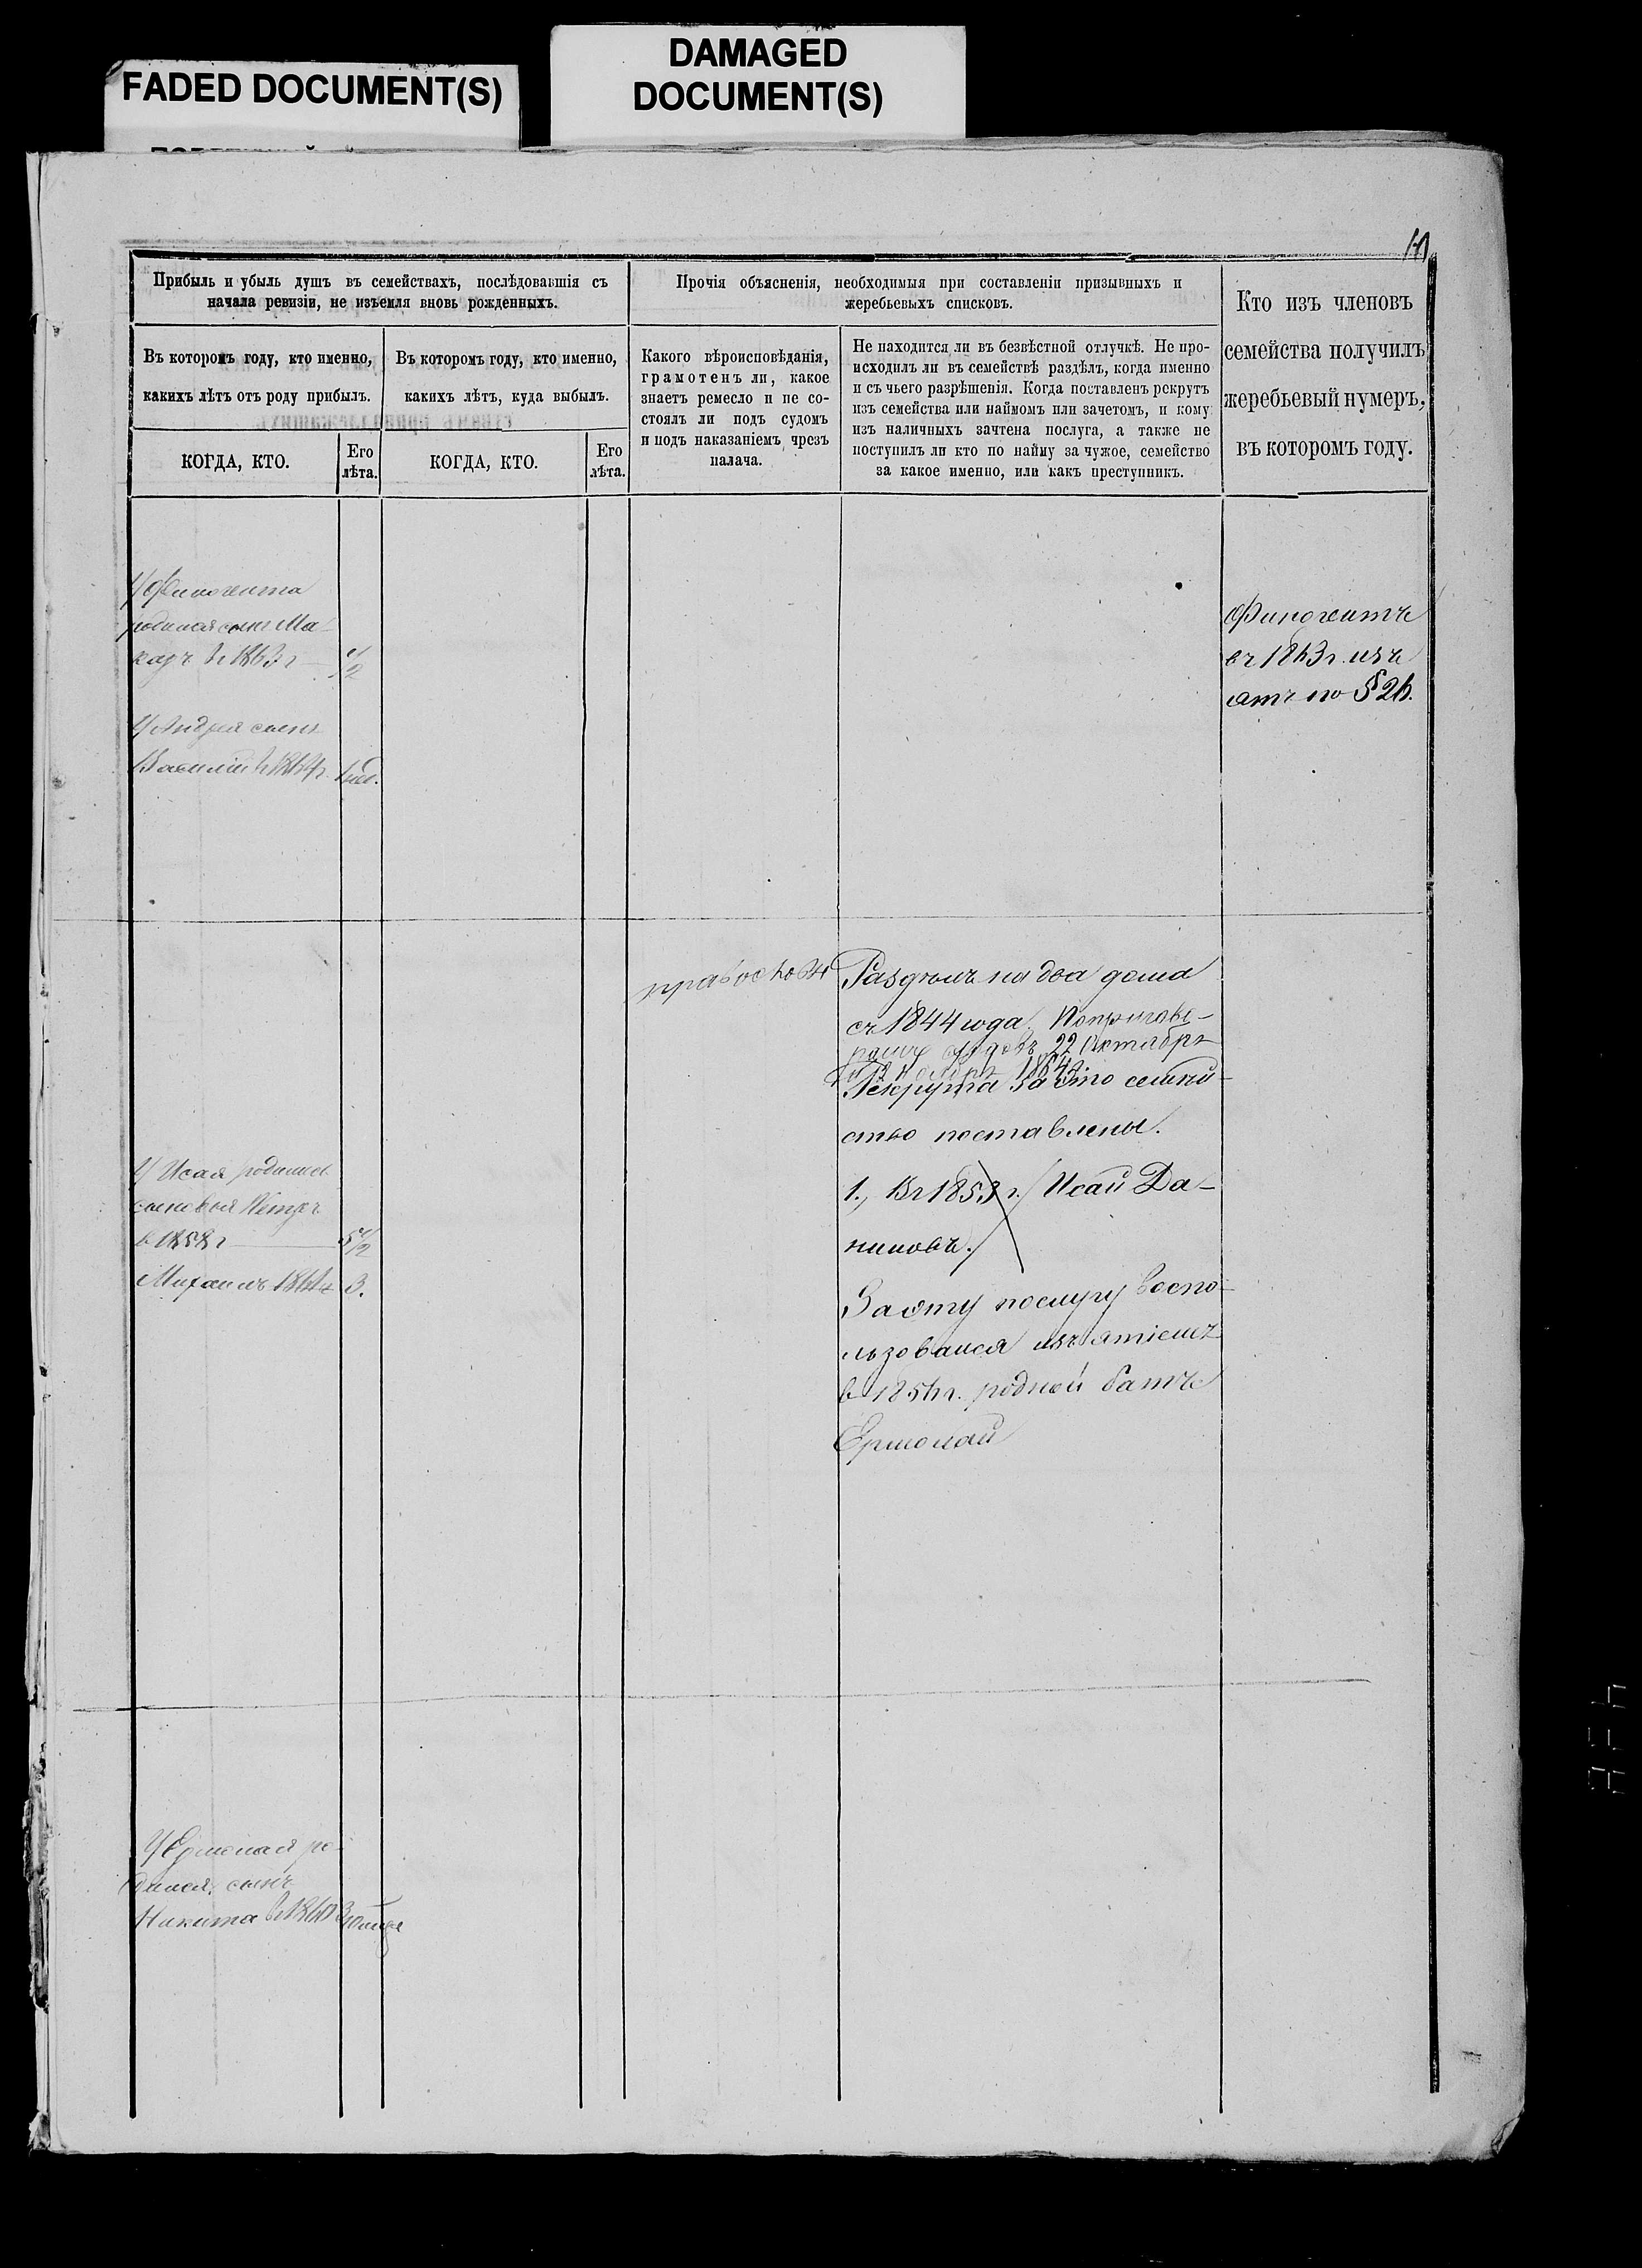 FADED DOCUMENT(S)
DAMAGED
DOCUMENT(S)
Прибыль и убыль душъ въ семействахъ, послѣдовавшія съ
начала ревизіи, не изъемля вновь рожденныхъ.
Прочія объясненія, необходимыя при составленіи призывныхъ и
жеребьевыхъ списковъ.
Кто изъ членовъ
семейства получилъ
жеребьевый нумеръ,
въ которомъ году.
Въ которомъ году, кто именно,
какихъ лѣтъ отъ роду прибылъ.
Въ которомъ году, кто именно,
какихъ лѣтъ, куда выбылъ.
Какого вѣроисповѣданія,
грамотенъ ли, какое
знаетъ ремесло и не со-
стоялъ ли подъ судомъ
и подъ наказаніемъ чрезъ
палача.
Не находится ли въ безвѣстной отлучкѣ. Не про-
исходилъ ли въ семействѣ раздѣлъ, когда именно
и съ чьего разрѣшенія. Когда поставленъ рекрутъ
изъ семейства или наймомъ или зачетомъ, и кому
изъ наличныхъ зачтена послуга, а также не
поступилъ ли кто по найму за чужое, семейство
за какое именно, или какъ преступникъ.
КОГДА, КТО.
Его
лѣта.
КОГДА, КТО.
Его
лѣта.
У Финогента
родился сынъ Ма-
каръ въ 1863 г 1/2
У Андрея сынъ
Василій в 1864 г.
Финогентъ
въ 1863 г. изъ
ятъ по §26.
Раздѣлъ на два дома
съ 1844 года.
22 Октября
Рекрута за это семей-
ство поставлены.
1., Въ 1853 г. Исай Да-
ниловъ.
За эту послугу воспо-
льзовался изъятіемъ
в 185 г. родной братъ
Ермолай
У Исая родились
сыновья Петръ
в 1858 г 5 1/2
Михаилъ 1861 г 3.
У Ермолая ро-
дился сынъ
Никита